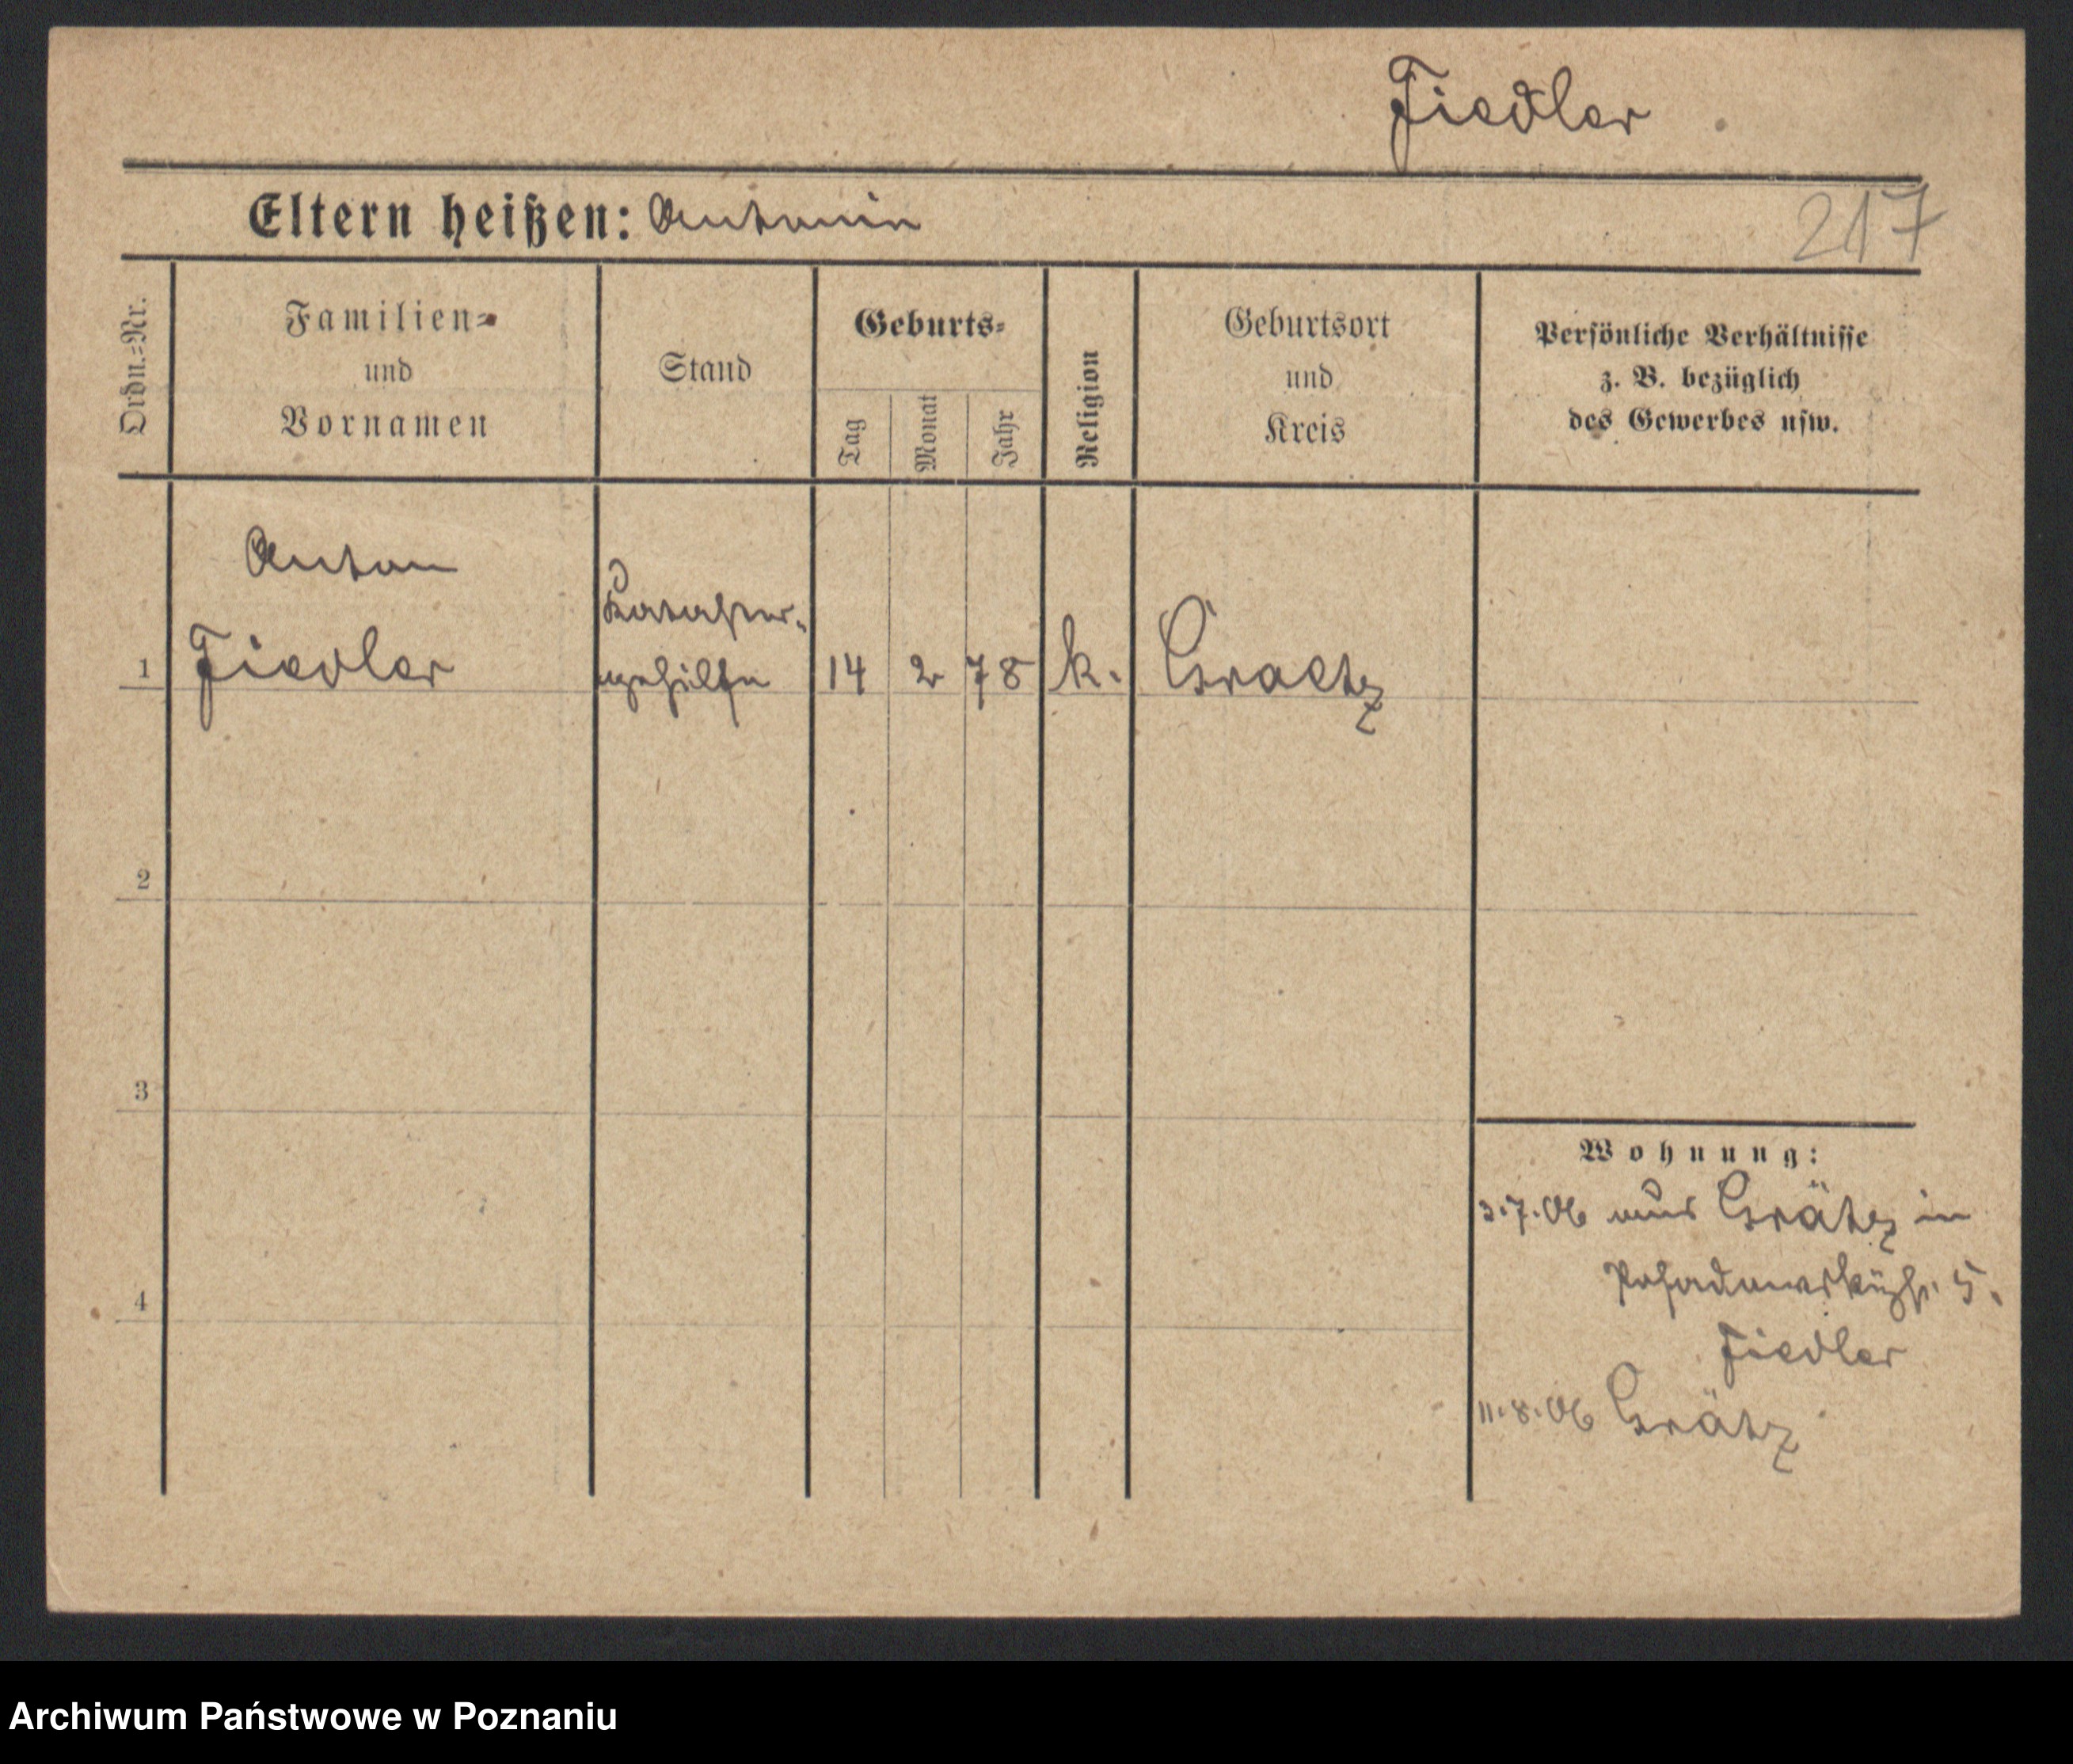 Fiedler
Eltern heißen: Antonin
217
Ordn.=Nr.
Familien=
und
Vornamen
Stand
Geburts=
Tag
Monat
Jahr
Religion
Geburtsort
und
Kreis
Persönliche Verhältnisse
z. B. bezüglich
des Gewerbes usw.
Anton
Kataster-
1 Fiedler gehilfe 14 2 78 k. Graetz
2
3
4
Wohnung:
3.7.06 aus Grätz in
Posadowskystr. 5.
Fiedler
11.8.06 Grätz
Archiwum Państwowe w Poznaniu